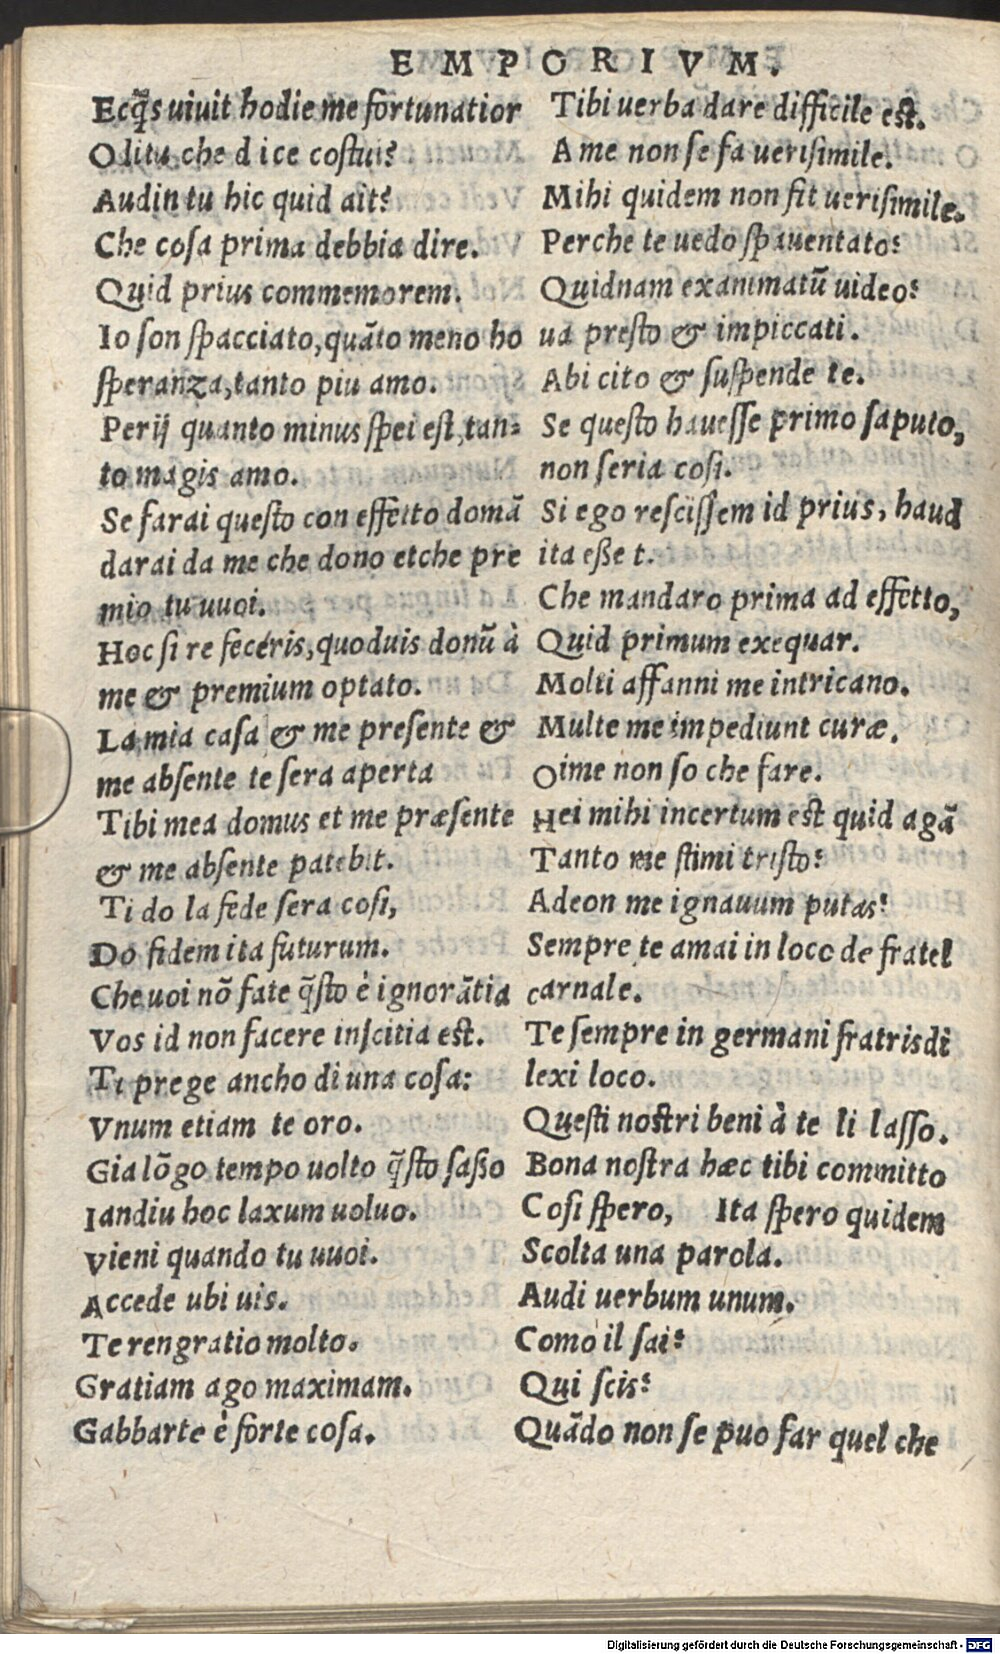 EMPORIVM.
Ecq̃s uiuit hodie me fortunatior
Odi tu che dice costui?
Audin tu hic quid ait?
Che cosa prima debbia dire.
Quid prius commemorem.
Io son spacciato, quãto meno ho
speranza, tanto piu amo.
Perij quanto minus spei est, tan-
to magis amo.
Se farai questo con effetto domã
darai da me che dono etche pre
mio tu uuoi.
Hoc si re feceris, quoduis donũ à
me & premium optato.
La mia casa & me presente &
me absente te sera aperta
Tibi mea domus et me præsente
& me absente patebit.
Ti do la fede sera cosi,
Do fidem ita futurum.
Che uoi nõ fate q̃sto è ignorãtia
Vos id non facere inscitia est.
Ti prege ancho di una cosa:
Vnum etiam te oro.
Gia lõgo tempo uolto q̃sto saßo
Iandiu hoc laxum uoluo.
Vieni quando tu uuoi.
Accede ubi uis.
Te rengratio molto.
Gratiam ago maximam.
Gabbarte è forte cosa.
Tibi uerba dare difficile est.
A me non se fa uerisimile.
Mihi quidem non fit uerisimile.
Perche te uedo spauentato?
Quidnam exanimatũ uideo?
ua presto & impiccati.
Abi cito & suspende te.
Se questo hauesse primo saputo,
non seria cosi.
Si ego rescissem id prius, haud
ita eße t.
Che mandaro prima ad effetto,
Quid primum exequar.
Molti affanni me intricano.
Multe me impediunt curæ.
Oime non so che fare.
Hei mihi incertum est quid agã
Tanto me stimi tristo?
Adeon me ignauum putas?
Sempre te amai in loco de fratel
carnale.
Te sempre in germani fratris di
lexi loco.
Questi nostri beni à te li lasso.
Bona nostra hæc tibi committo
Cosi spero, Ita spero quidem
Scolta una parola.
Audi uerbum unum.
Como il sai?
Qui scis?
Quãdo non se puo far quel che
Digitalisierung gefördert durch die Deutsche Forschungsgemeinschaft - DFG